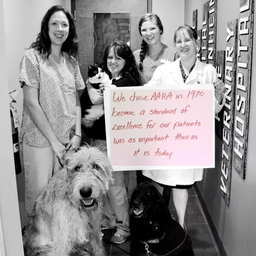 We chose AAHA in 1970
because a standard of
excellence for our patients
was as important then as
it is today
VETERINARY
HOSPITAL